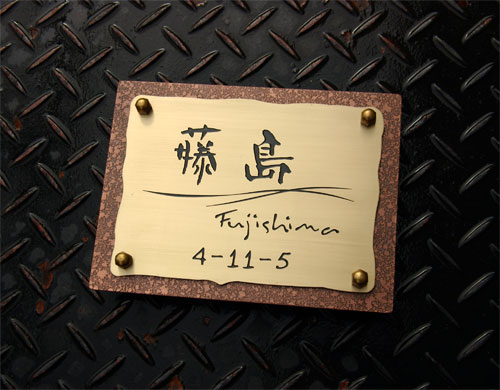 藤島
Fujishima
4-11-5